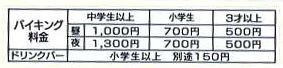 バイキング料金 中学生以上 小学生 3才以上
昼 1,000円 700円 500円
夜 1,300円 700円 500円
ドリンクバー 小学生以上 別途150円